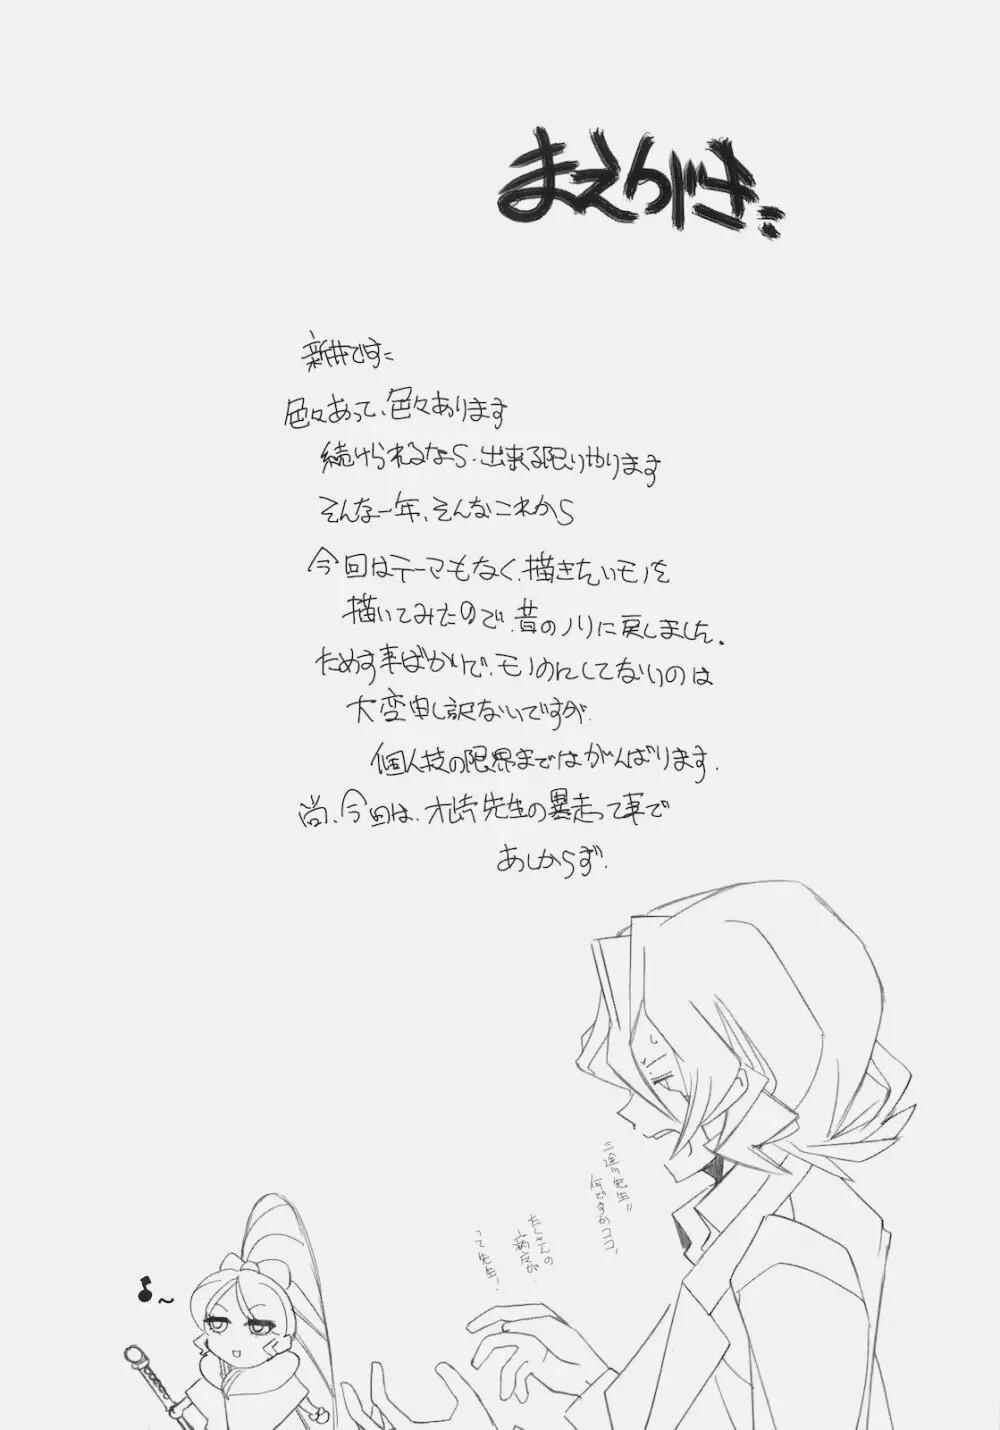 まえがき
新井です
色々あって、色々あります
続けられるなら、出来る限りやります
そんな一年、そんなこれから
今回はテーマもなく、描きたいモノを
描いてみたので、昔のノリに戻しました。
ためす事ばかりで、モノめにしてないのは
大変申し訳ないですが、
個人技の限界まではがんばります。
尚、今回は、先生の暴走って事で
あしからず。
先生!!
何ですかココ、
たくさんの
って先生!